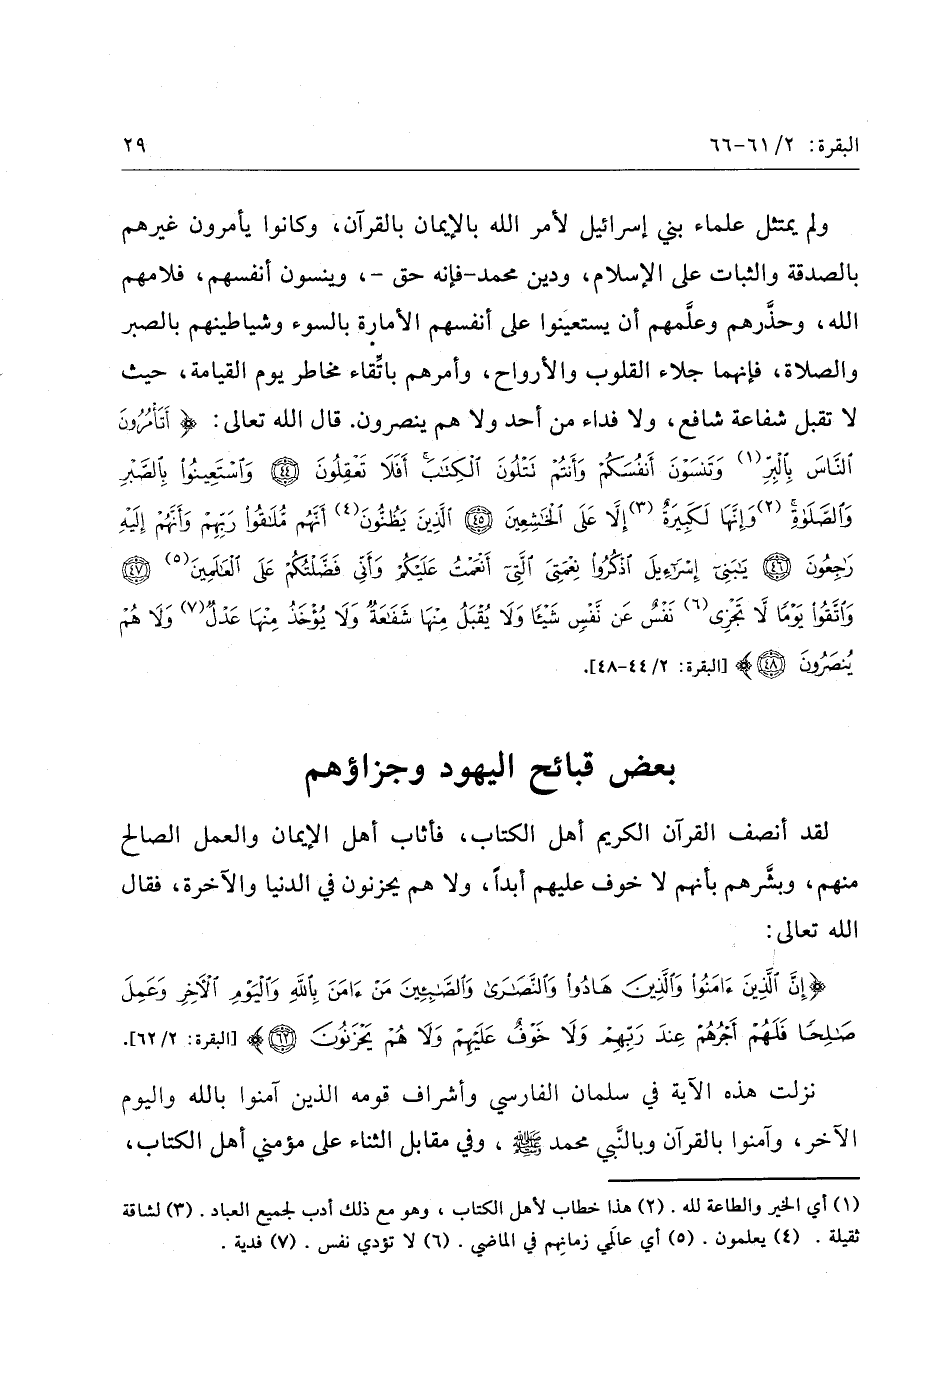 البقرة: ٢/ ٦١-٦٦ ٢٩
ولم يمتثل علماء بني إسرائيل لأمر الله بالإيمان بالقرآن، وكانوا يأمرون غيرهم
بالصدقة والثبات على الإسلام، ودين محمد-فإنه حق -، وينسون أنفسهم، فلامهم
الله، وحذَّرهم وعلَّمهم أن يستعينوا على أنفسهم الأمارة بالسوء وشياطينهم بالصبر
والصلاة، فإنهما جلاء القلوب والأرواح، وأمرهم باتِّقاء مخاطر يوم القيامة، حيث
لا تقبل شفاعة شافع، ولا فداء من أحد ولا هم ينصرون. قال الله تعالى: ﴿ أَتَأْمُرُونَ
ٱلنَّاسَ بِٱلْبِرِّ(١) وَتَنسَوْنَ أَنفُسَكُمْ وَأَنتُمْ تَتْلُونَ ٱلْكِتَٰبَۚ أَفَلَا تَعْقِلُونَ ٤٤ وَٱسْتَعِينُوا۟ بِٱلصَّبْرِ
وَٱلصَّلَوٰةِۚ (٢)وَإِنَّهَا لَكَبِيرَةٌ (٣)إِلَّا عَلَى ٱلْخَٰشِعِينَ ٤٥ ٱلَّذِينَ يَظُنُّونَ(٤) أَنَّهُم مُّلَٰقُوا۟ رَبِّهِمْ وَأَنَّهُمْ إِلَيْهِ
رَٰجِعُونَ ٤٦ يَٰبَنِىٓ إِسْرَٰٓءِيلَ ٱذْكُرُوا۟ نِعْمَتِىَ ٱلَّتِىٓ أَنْعَمْتُ عَلَيْكُمْ وَأَنِّى فَضَّلْتُكُمْ عَلَى ٱلْعَٰلَمِينَ(٥) ٤٧
وَٱتَّقُوا۟ يَوْمًا لَّا تَجْزِى(٦) نَفْسٌ عَن نَّفْسٍ شَيْـًٔا وَلَا يُقْبَلُ مِنْهَا شَفَٰعَةٌ وَلَا يُؤْخَذُ مِنْهَا عَدْلٌ(٧) وَلَا هُمْ
يُنصَرُونَ ٤٨ ﴾ [البقرة: ٢/ ٤٤-٤٨].
بعض قبائح اليهود وجزاؤهم
لقد أنصف القرآن الكريم أهل الكتاب، فأثاب أهل الإيمان والعمل الصالح
منهم، وبشَّرهم بأنهم لا خوف عليهم أبداً، ولا هم يحزنون في الدنيا والآخرة، فقال
الله تعالى:
﴿إِنَّ ٱلَّذِينَ ءَامَنُوا۟ وَٱلَّذِينَ هَادُوا۟ وَٱلنَّصَٰرَىٰ وَٱلصَّٰبِـِٔينَ مَنْ ءَامَنَ بِٱللَّهِ وَٱلْيَوْمِ ٱلْءَاخِرِ وَعَمِلَ
صَٰلِحًا فَلَهُمْ أَجْرُهُمْ عِندَ رَبِّهِمْ وَلَا خَوْفٌ عَلَيْهِمْ وَلَا هُمْ يَحْزَنُونَ ٦٢ ﴾ [البقرة: ٢/ ٦٢].
نزلت هذه الآية في سلمان الفارسي وأشراف قومه الذين آمنوا بالله واليوم
الآخر، وآمنوا بالقرآن وبالنَّبي محمد ﷺ ، وفي مقابل الثناء على مؤمني أهل الكتاب،
(١) أي الخير والطاعة لله . (٢) هذا خطاب لأهل الكتاب ، وهو مع ذلك أدب لجميع العباد . (٣) لشاقة
ثقيلة . (٤) يعلمون . (٥) أي عالَمي زمانهم في الماضي . (٦) لا تؤدي نفس . (٧) فدية .